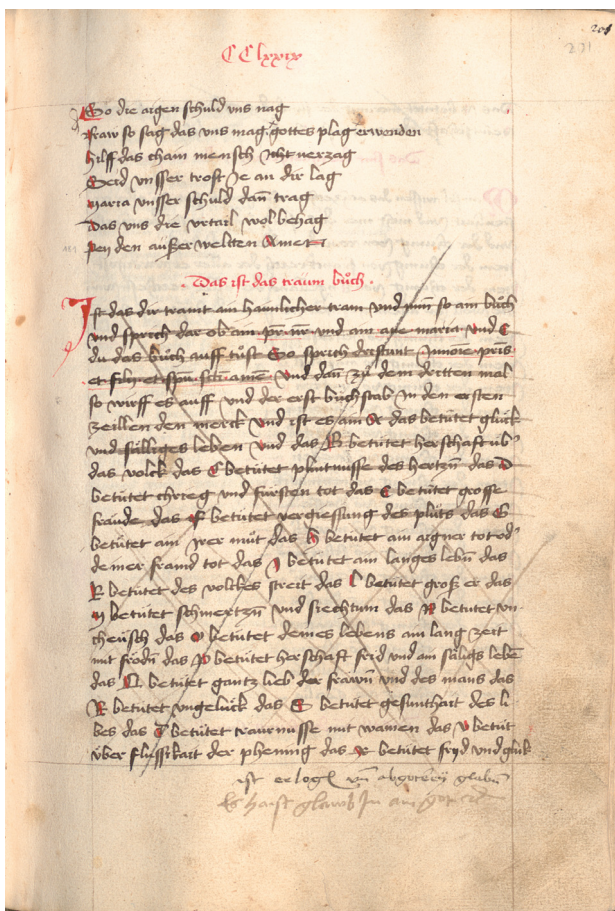 CC lxxix
201
271
So die argen schuld vns nag
fraw so sag das vns mag gottes plag erwenden
hilff das chain mensch icht verzag
Seid vnsser trost ie an dir lag
maria vnsser schuld dann trag
das vns die vrtail wol behag
pey den ausser weltten Amen
Das ist das traum bůch
Ist das dir traimt ain haimlicher tram vnd nim so ain bůch
vnd sprich dar ob ain pr nr vnd ain aue maria vnd E
du das bůch auff tůst So sprich dreistunt Innoīe pris
et filij et spūs sēti amen vnd dan zů dem dritten mal
so wirff es auff vnd der erst bůchstab in den ersten
zeillen den merck vnd ist es ain A das betütet glück
vnd sälliges leben vnd das B betütet herschaft üb
das volck das C betütet plintnusse des hertzn das D
betütet chrieg vnd fürsten tot das E betütet grosse
fräude das F betütet vergiessung des plůts das G
betütet ain swer můt das h betütet ain aigner tot od
deiner fraind tot das I betütet ain langes lebn das
K betütet des volckes streit das l betütet groß er das
m betütet schmertzn vnd siechtum das N betutet vn
cheüsch das o betütet deines lebens ain lang zeit
mit frödn das P betütet herschaft frid vnd ain säligs lebē
das Q betütet gantz lieb der frawn vnd des mans das
R betütet vngelück das S betütet gesunthait des li
bes das T betütet traurnusse mit wainen das v betüt
über flüssikait der phennig das x betütet frijd vnd glük
ist erlogē vn abgotterij glabn
Es haist glaub In ain got